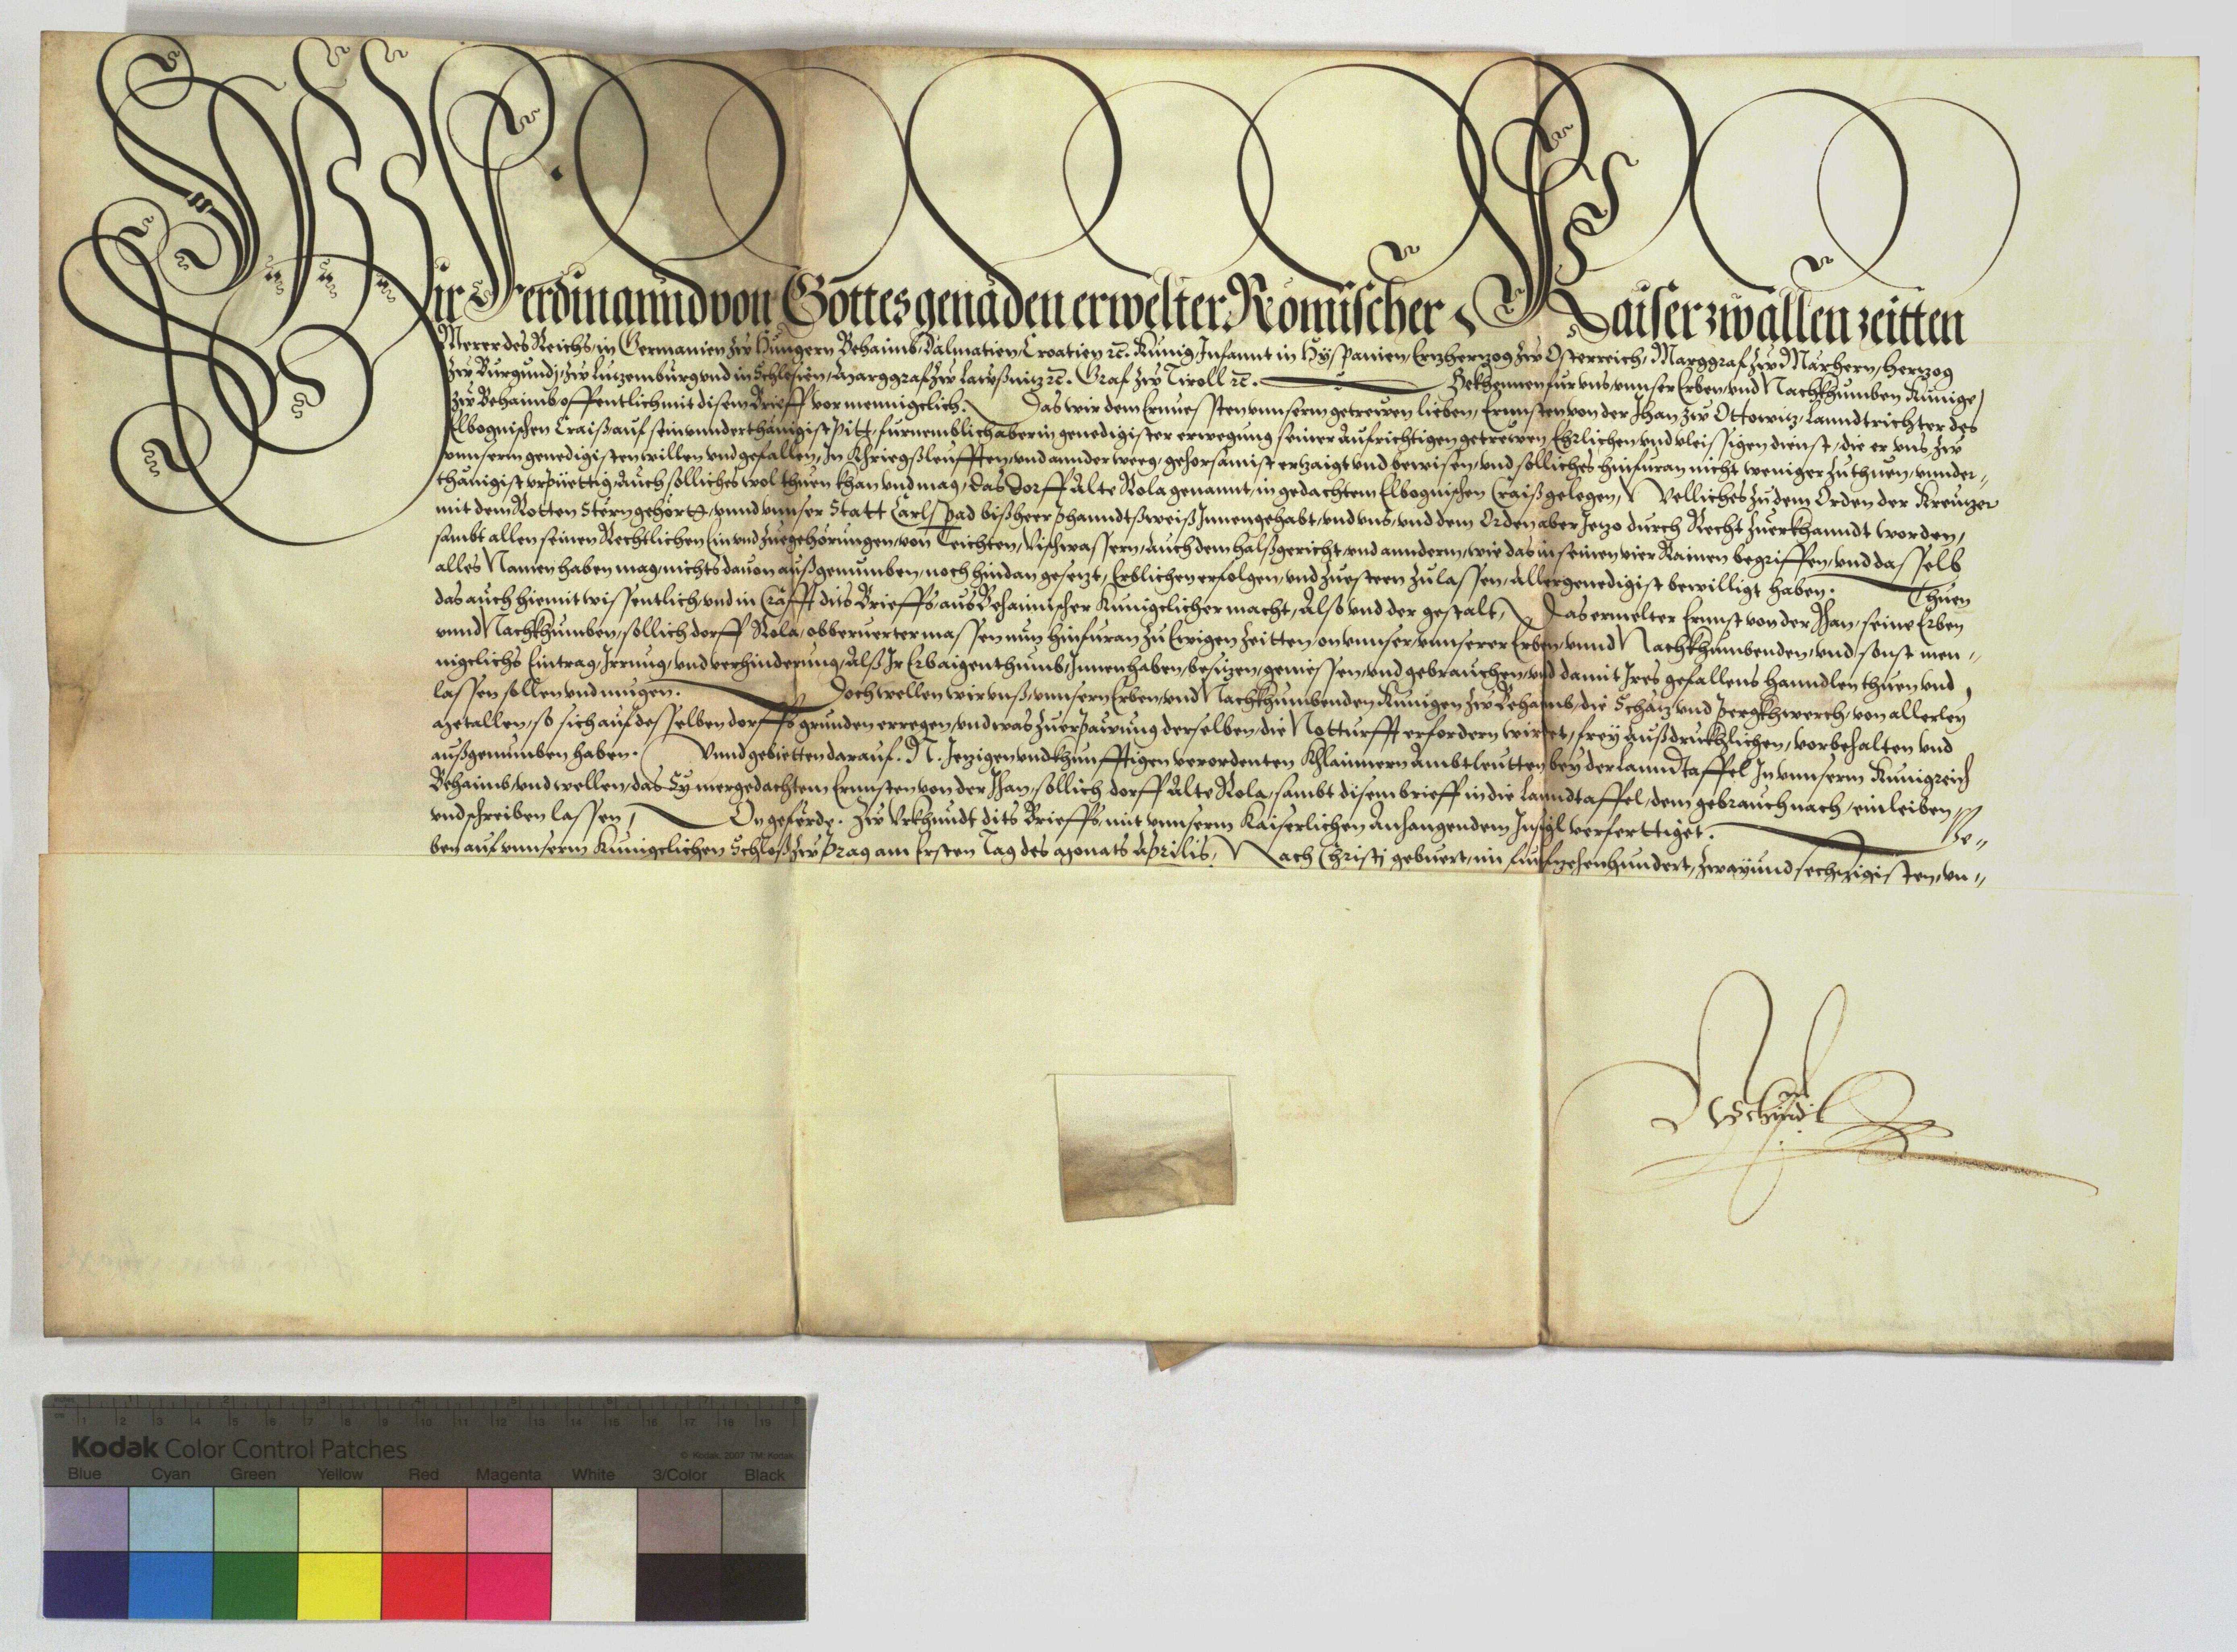 Wir Ferdinannd von Gottes genaden erwelter Römischer Kaiser zw allen zeitten
Merer des Reichs, in Germanien zw Hungern Behaimb, Dalmatien, Croatien rc. Kunig, Infannt in Hyspanien, Ertzhertzog zw Osterreich, Marggraf zw Märhern, Hertzog
zw Burgundj, zw Lutzemburg vnd in Schlesien, Marggraf zw Laußnitz rc. Graf zw Tiroll rc. Bekhennen fur vns, vnnser Erben, vnd Nachkhumben Kunige
zw Behaimb, offentlich mit disem Brieff vor mennigclich. Das wir dem Ernuessten vnnserm getrewen lieben, Ernnsten von der Jhan zw Ottowitz, Lanndtrichter des
Elbognischen Craiß auf sein vnnderthänigist Pitt, furnemblich aber in genedigister erwegung seiner aufrichtigen getrewen Ehrlichen vnd vleissigen dienst, die er vns, zw
vnnserm genedigisten willen vnd gefallen, in Khriegßleufften, vnd annder weeg, gehorsamist ertzaigt vnd bewisen, vnd solliches hinfuran nicht weniger zu thuen, vnnder„
thänigist vrpüettig, auch solliches wol thuen khan vnd mag, das Dorff Alte Rola genannt, in gedachtem Elbognischen Craiß gelegen, Welliches zu dem Orden der Kreutzer
mit dem Rotten Stern gehörtt, vnnd vnnser Statt Carls Pad bißheer phanndtßweiß Innen gehabt, vnd vns, vnd dem Orden aber Jetzo durch Recht zuerkhanndt worden,
sambt allen seinen Rechtlichen Ein vnd zuegehörungen, von Teichten, Vischwassern, auch dem halßgericht, vnd annderm, wie das in seinen vier Rainen begriffen, vnd dasselb
alles Namen haben mag, nichts dauon außgenumben, noch hindan gesetzt, Erblichen erfolgen, vnd zuesteen zu lassen, allergenedigist bewilligt haben. Thuen
das auch hiemit wissentlich, vnd in Crafft dits Brieffs, aus Behaimischer Kunigclicher macht, also vnd der gestalt, Das ermelter Ernnst von der Jhan, seine Erben
vnnd Nachkhumben, sollich dorff Rola, obberuerter massen nun hinfuran zu Ewigen zeitten, on vnnser, vnnserer Erben, vnnd Nachkhumbenden, vnd sonst men„
nigclichs Eintrag, Irrung, vnd verhinderung, alß Ir Erbaigenthumb, Innen haben, besitzen, geniessen, vnd gebrauchen, vnd damit Ires gefallens hanndlen thuen vnd
lassen sollen vnd mugen. Doch wellen wir vnß, vnnsern Erben, vnd Nachkhumbenden Kunigen zw Behaimb, die Schätz vnd Pergkhwerch, von allerley
Metallen, so sich auf desselben dorffs grunden erregen, vnd was zuerpawung derselben, die Notturfft erfordern wirdet, frey außdrukhlichen, vorbehalten vnd
außgenumben haben. Vnnd gebietten darauf. N. Jetzigen vnd khunfftigen verordenten Khlainern Ambtleutten bey der Lanndtaffel In vnnserm Kunigreich
Behaimb, vnd wellen, das Sy mergedachtem Ernnsten von der Jhan, sollich dorff Alte Rola, sambt disem brieff in die Lanndtaffel, dem gebrauch nach, einleiben,
vnd schreiben lassen, On geferde. Zw Vrkhundt dits Brieffs, mit vnnserm Kaiserlichen Anhangendem Insigl verferttiget. Ge„
ben auf vnnserm Kunigclichen Schloß zw Prag am Ersten Tag des Monats Aprilis, Nach Christj geburt, im funfzehenhundert, zwayundsechtzigisten, vn„
Kodak Color Control Patches
© Kodak, 2007 TM: Kodak
Blue Cyan Green Yellow Red Magenta White 3/Color Black